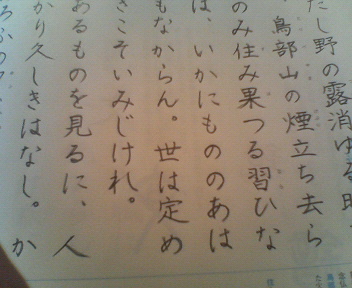 だし野の露消ゆる時
鳥部山の煙立ち去ら
のみ住み果つる習ひな
ば、いかにもののあは
もなからん。世は定め
きこそいみじけれ。
あるものを見るに、人
かり久しきはなし。か
ろふの